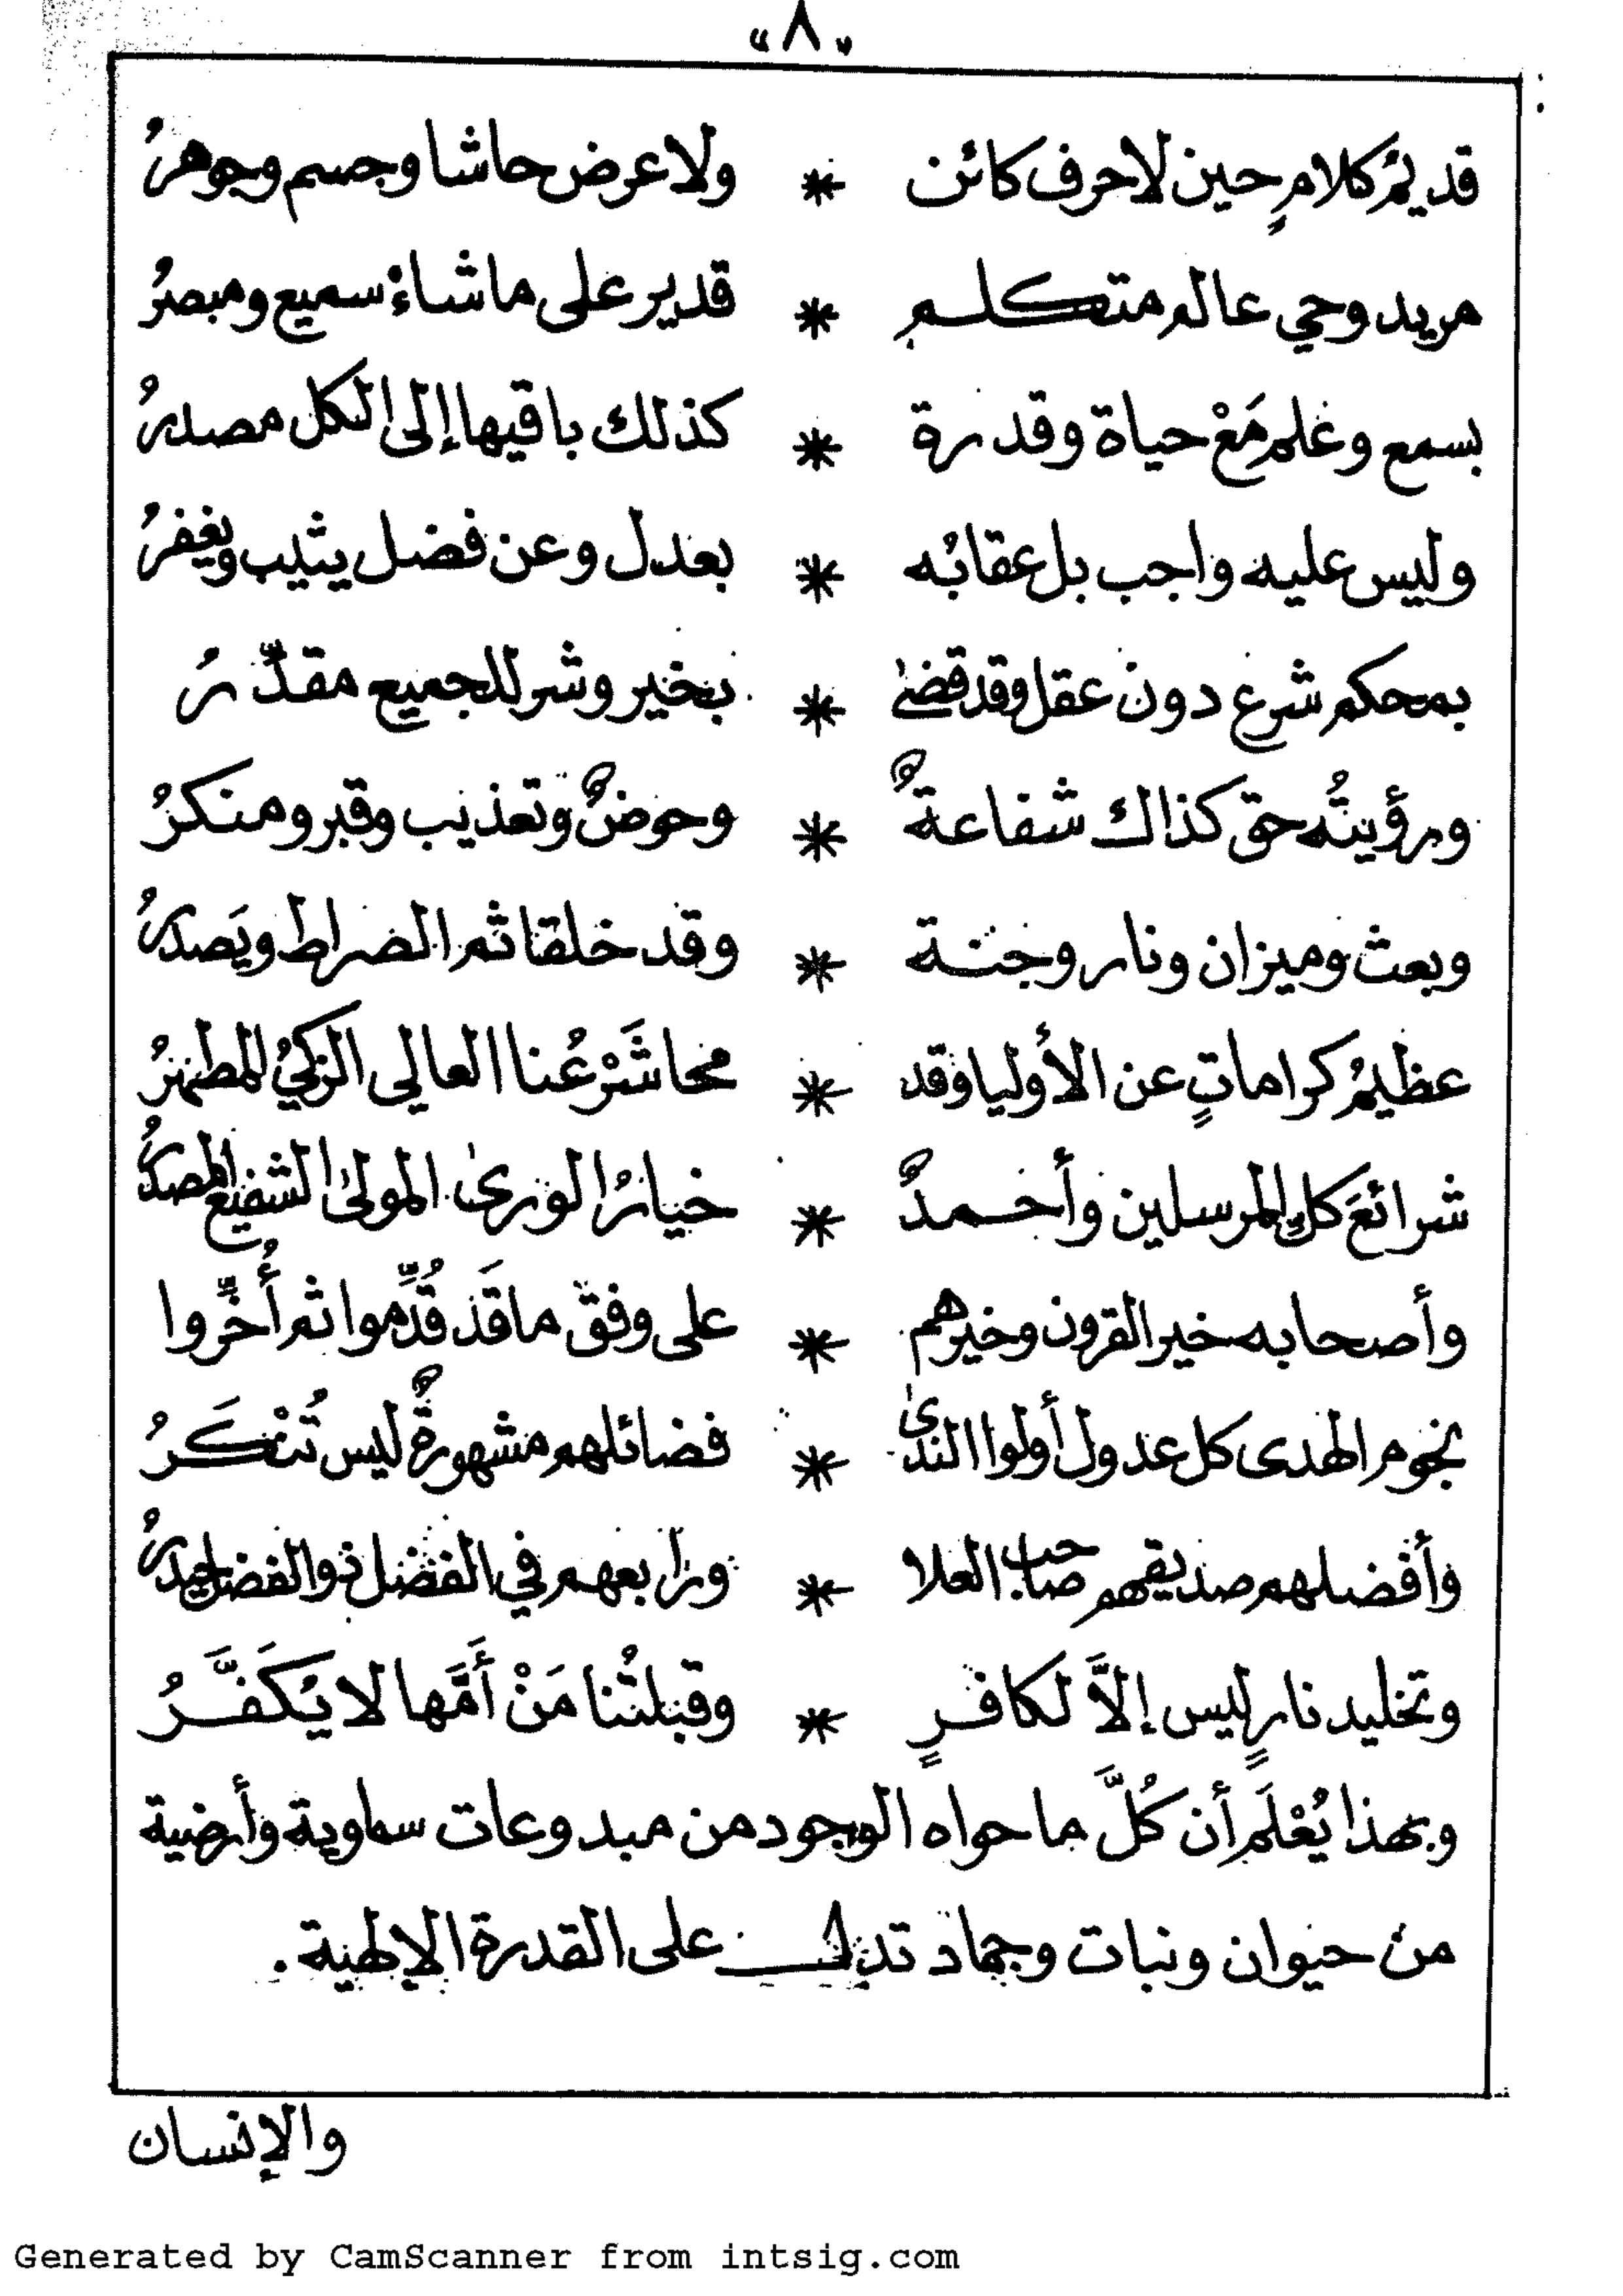 «٨»
قديمُ كلامٍ حين لا حرف كائن * ولا عرض حاشا وجسم وجوهرُ
مريد وحي عالم متكلم * قدير على ما شاءْ سميع ومبصرُ
بسمع وعلم مَعْ حياة وقدرة * كذلك باقيها إلى الكل مصدرُ
وليس عليه واجب بل عقابُه * بعدل وعن فضل يثيب ويغفرُ
بمحكم شرع دون عقل وقد قضىٰ * بخير وشر للجميع مقدّرُ
ورؤيتُه حق كذاك شفاعةٌ * وحوضٌ وتعذيب وقبر ومنكرُ
وبعث وميزان ونار وجنة * وقد خلقا ثم الضراط ويَصدرُ
عظيمُ كراماتٍ عن الأوليا وقد * محا شَرْعُنا العالي الزكيُ المطهرُ
شرائعَ كلِ المرسلين وأحمدٌ * خيارُ الورىٰ المولىٰ الشفيع المصدرُ
وأصحابه خير القرون وخيرهم * على وفق ما قَد قُدِّموا ثم أُخِّروا
نجوم الهدى كل عدول أولوا الندىٰ * فضائلهم مشهورةٌ ليس تُنْكَرُ
وأفضلهم صديقهم صاحب العلا * ورابعهم في الفضل ذو الفضل حيدرُ
وتخليد نارٍ ليس إلاَّ لكافرٍ * وقبلتُنا مَنْ أَمَّها لا يُكَفَّرُ
وبهذا يُعْلَم أن كُلَّ ما حواه الوجود من مبدوعات سماوية وأرضية
من حيوان ونبات وجماد تدل على القدرة الإلهية .
والإنسان
Generated by CamScanner from intsig.com